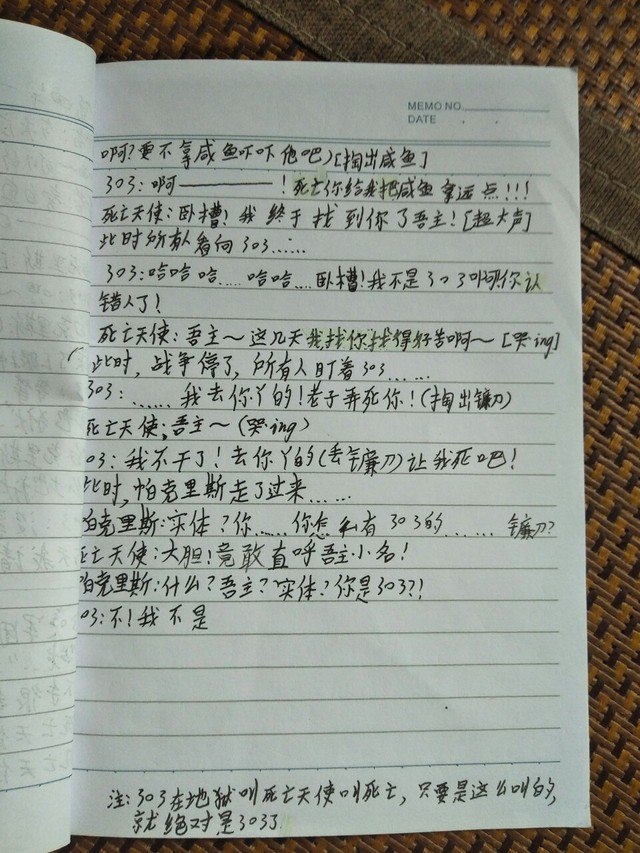 MEMO NO.
DATE . .
啊?要不拿咸鱼吓吓他吧)[掏出咸鱼]
303:啊————!死亡你给我把咸鱼拿远点!!!
死亡天使:卧槽!我终于找到你了吾主![超大声]
此时所有人看向303……
303:哈哈哈……哈哈…卧槽!我不是303啊你认
错人了!
死亡天使:吾主~这几天我找你找得好苦啊~[哭ing]
此时,战争停了,所有人盯着303……
303:……我去你丫的!老子弄死你!(掏出镰刀)
死亡天使:吾主~(哭ing)
03:我不干了!去你丫的(丢镰刀)让我死吧!
此时,帕克里斯走了过来……
帕克里斯:实体?你……你怎么有303的……镰刀?
死亡天使:大胆!竟敢直呼吾主小名!
帕克里斯:什么?吾主?实体?你是303?!
03:不!我不是
注:303在地狱叫死亡天使叫死亡,只要是这么叫的,
就绝对是303了